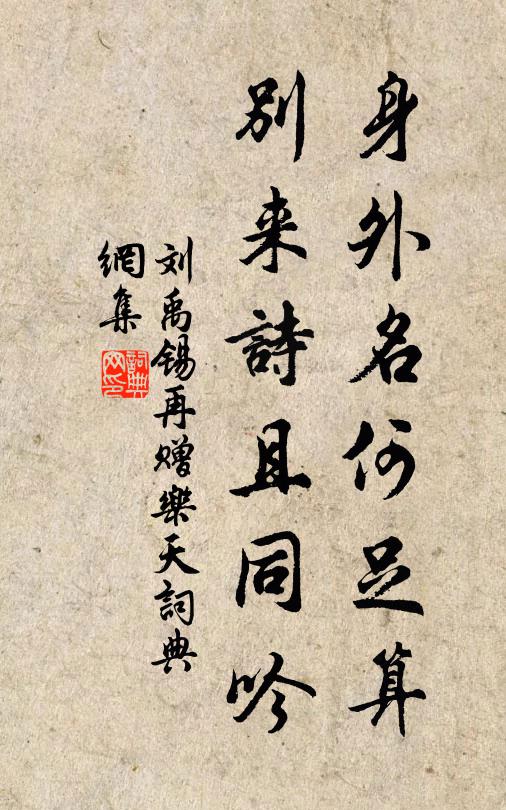 身外名何足算
別来詩且同吟
刘禹锡再赠樂天詞典
網集
詞典
网印